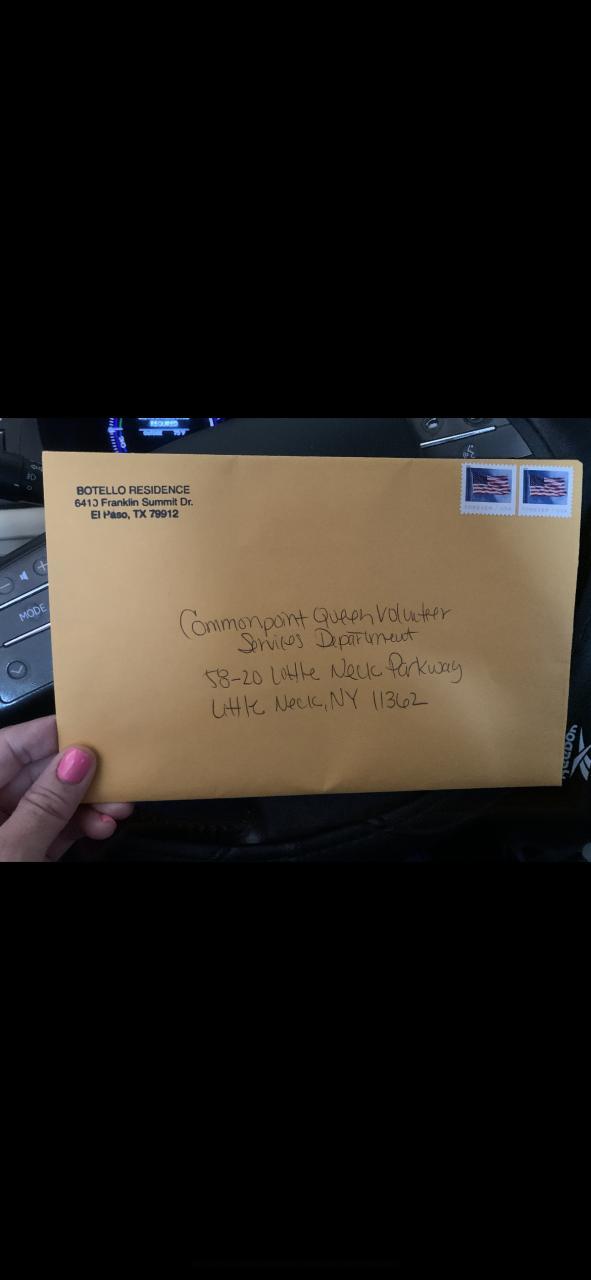 REQUIRED
BOTELLO RESIDENCE
6410 Franklin Summit Dr.
El Paso, TX 79912
FOREVER / USA
FOREVER / USA
MODE
Commonpoint Queen Volunteer
Services Department
58-20 Little Neck Parkway
Little Neck, NY 11362
Reebok